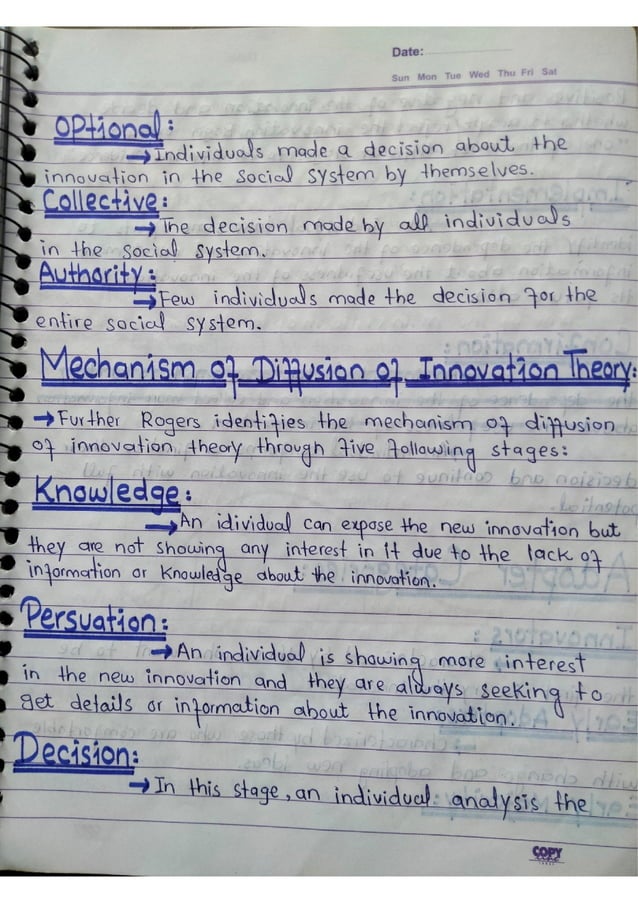 Date:
Sun Mon Tue Wed Thu Fri Sat
Optional:
→ Individuals made a decision about the
innovation in the social system by themselves.
Collective:
→ The decision made by all individuals
in the social system.
Authority:
→ Few individuals made the decision for the
entire social system.
Mechanism of Diffusion of Innovation Theory:
→ Further Rogers identifies the mechanism of diffusion
of innovation theory through five following stages:
Knowledge:
→ An idividual can expose the new innovation but
they are not showing any interest in it due to the lack of
information or Knowledge about the innovation.
Persuation:
→ An individual is showing more interest
in the new innovation and they are always seeking to
get details or information about the innovation.
Decision:
→ In this stage, an individual analysis the
COPY